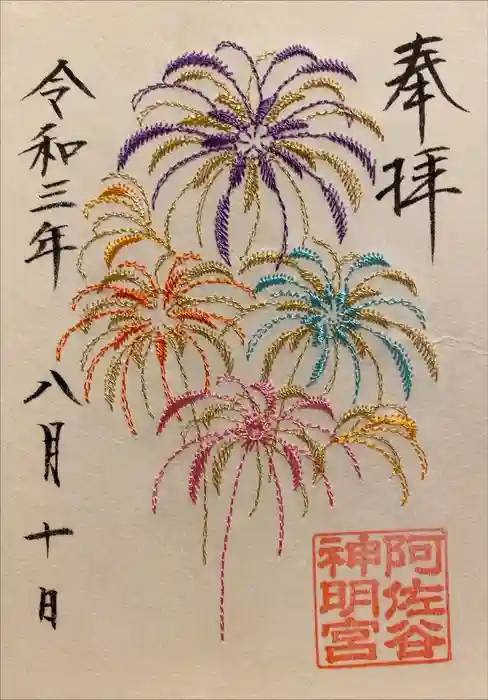 奉拝
阿佐谷
神明宮
令和三年 八月 十日